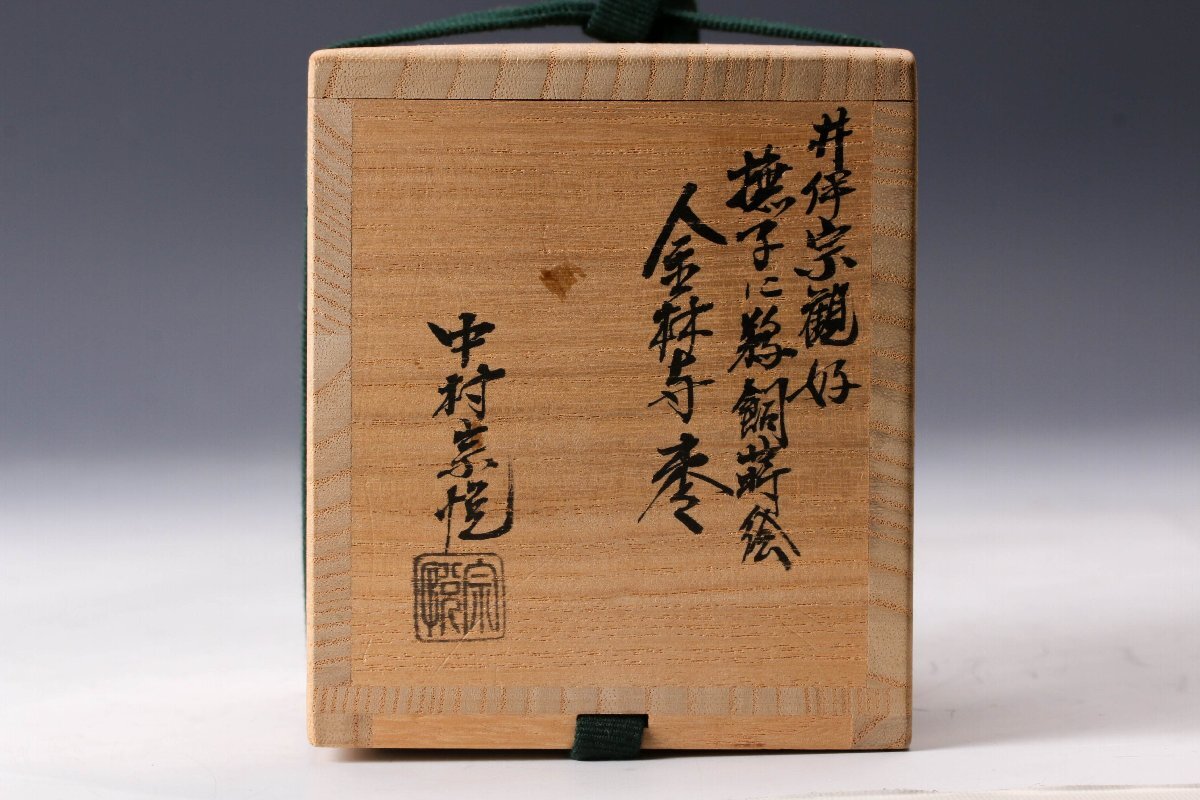 井伊宗観好
撫子に鵜飼蒔絵
金林寺棗
中村宗悦
宗悦